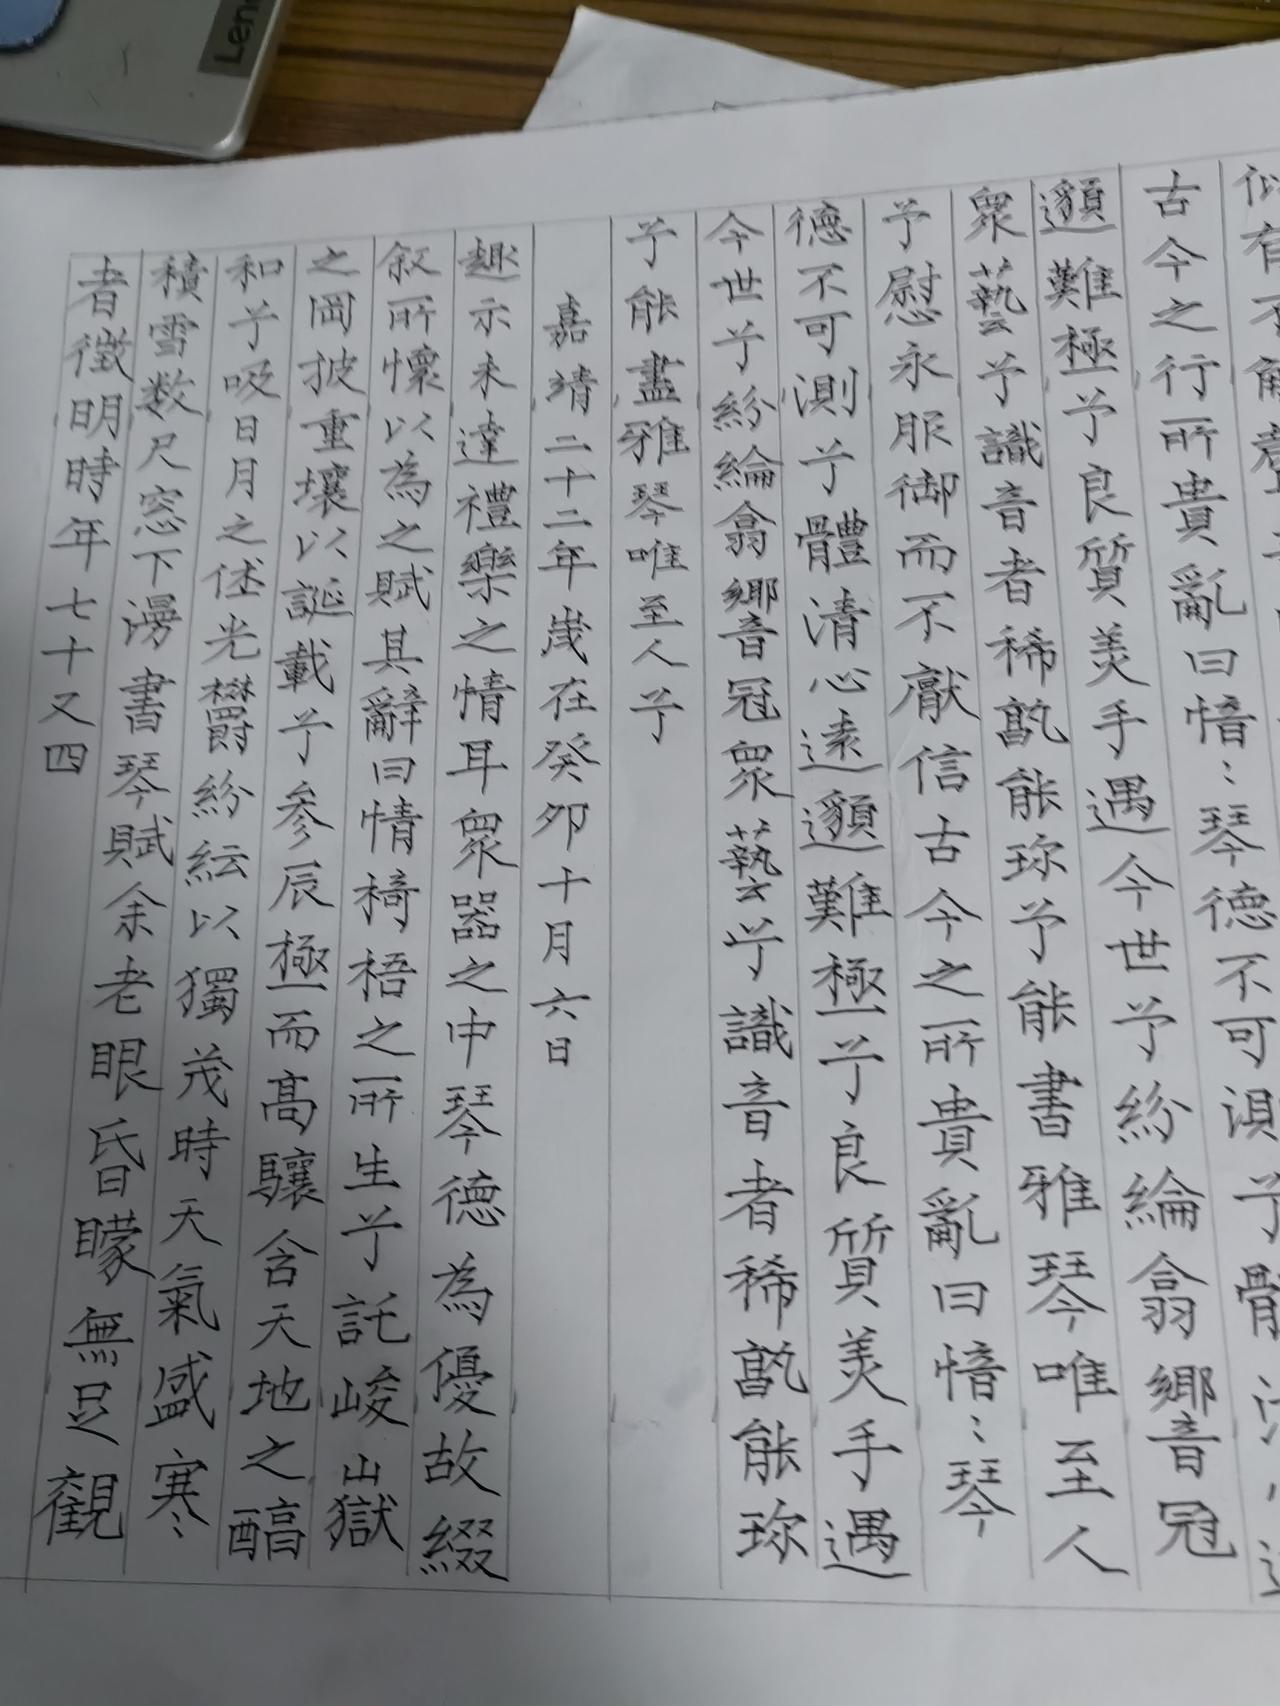 Leno
似有不解音予
不可測予體清
古今之行所貴亂曰愔:琴德不可測予體清心遠
邈難極予良質美手遇今世予紛綸翕響冠
衆藝予識音者稀孰能珍予能書雅琴唯至人
予慰永服御而不厭信古今之所貴亂曰愔:琴
德不可測兮體清心遠邈難極兮良質美手遇
今世兮紛綸翕響冠衆藝兮識音者稀孰能珍
兮能盡雅琴唯至人兮
嘉靖二十二年歲在癸卯十月六日
趣亦未達禮樂之情耳衆器之中琴德為優故綴
叙所懷以為之賦其辭曰惰椅梧之所生兮託峻嶽
之岡披重壤以誕載兮參辰極而高驤含天地之醕
和兮吸日月之休光欝紛紜以獨茂時天氣盛寒:
積雪数尺窓下漫書琴賦余老眼昏矇無足觀
者徵明時年七十又四